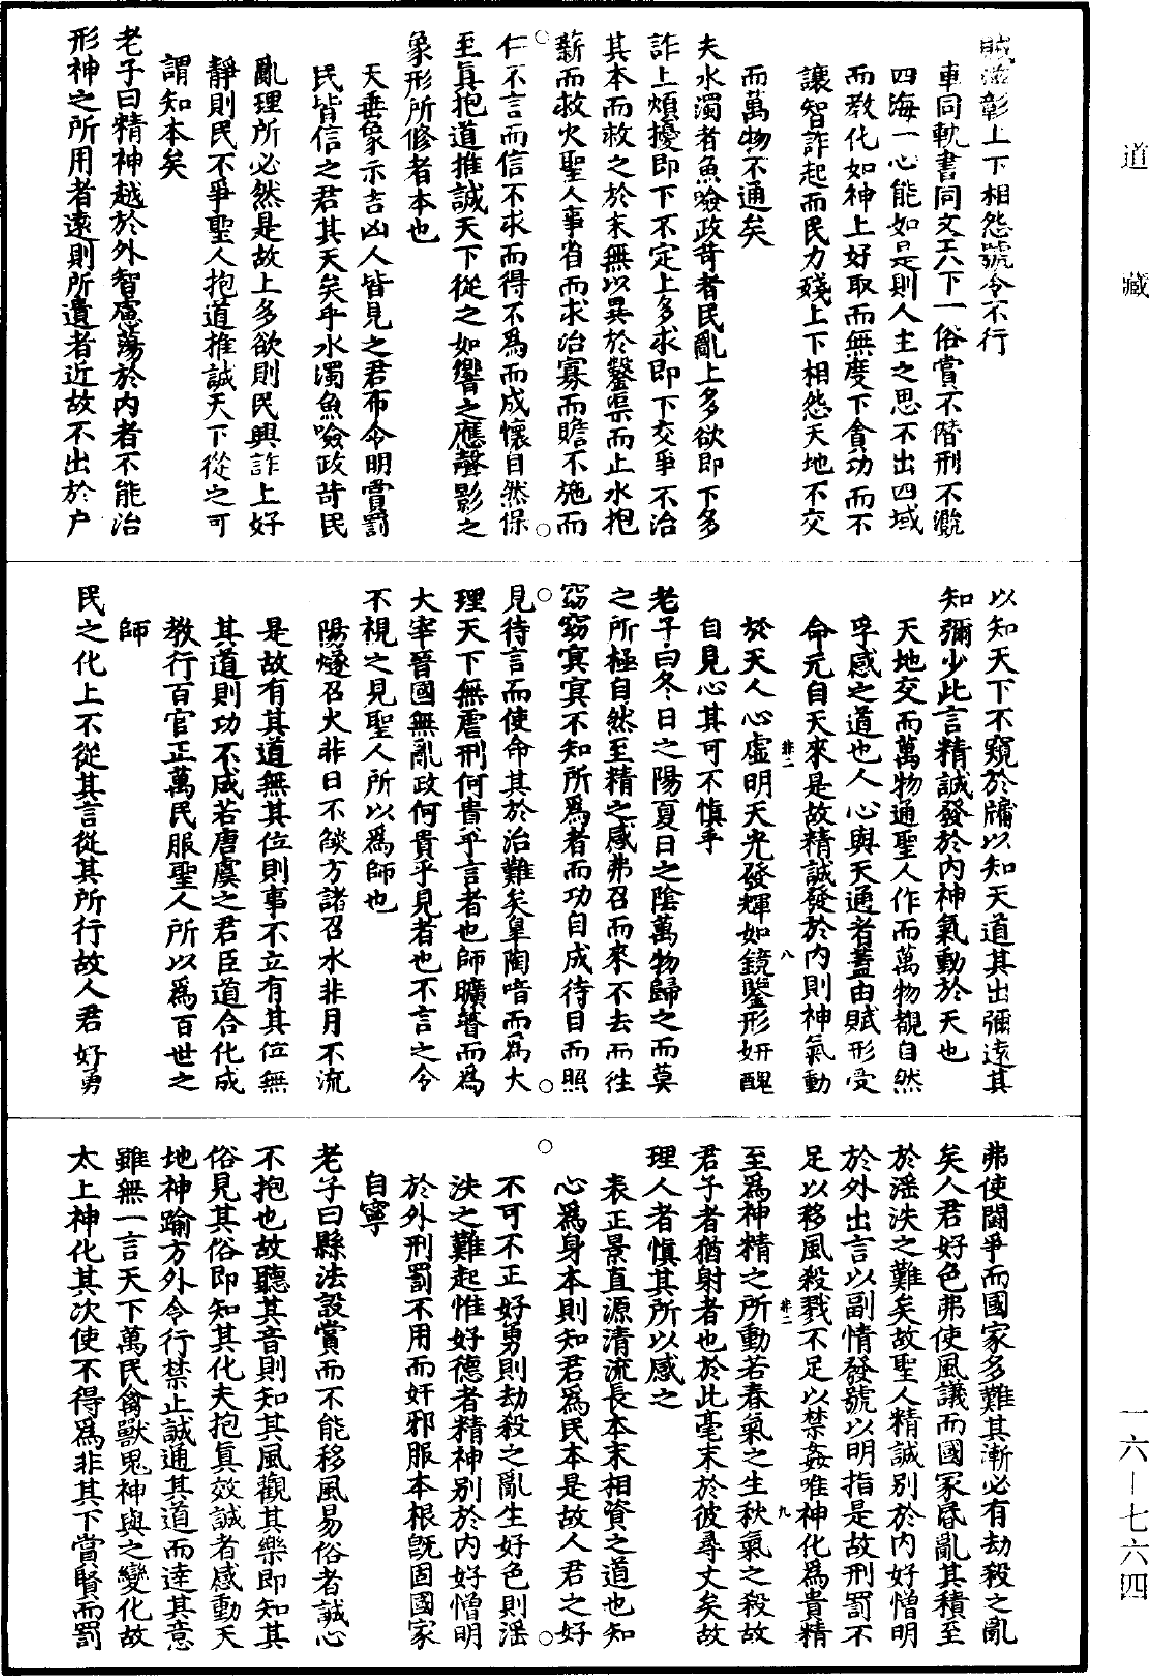 道藏
賊滋彰上下相怨號令不行
車同軌書同文天下一俗賞不僭刑不濫
四海一心能如是則人主之思不出四域
而教化如神上好取而無度下貪功而不
讓智詐起而民力殘上下相怨天地不交
而萬物不通矣
夫水濁者魚噞政苛者民亂上多欲即下多
詐上煩擾即下不定上多求即下交爭不治
其本而救之於末無以異於鑿渠而止水抱
薪而救火聖人事省而求治寡而贍不施而
仁不言而信不求而得不為而成懷自然保
至真抱道推誠天下從之如響之應聲影之
象形所修者本也
天垂象示吉凶人皆見之君布令明賞罰
民皆信之君其天矣乎水濁魚噞政苛民
亂理所必然是故上多欲則民興詐上好
靜則民不爭聖人抱道推誠天下從之可
謂知本矣
老子曰精神越於外智慮蕩於內者不能治
形神之所用者遠則所遺者近故不出於户
以知天下不窺於牖以知天道其出彌遠其
知彌少此言精誠發於內神氣動於天也
天地交而萬物通聖人作而萬物覩自然
孚感之道也人心與天通者蓋由賦形受
命元自天來是故精誠發於內則神氣動
於天人心虛明天光發輝如鏡鑒形妍醜
自見心其可不慎乎
老子曰冬日之陽夏日之陰萬物歸之而莫
之所極自然至精之感弗召而來不去而往
窈窈冥冥不知所為者而功自成待目而照
見待言而使命其於治難矣皐陶喑而為大
理天下無虐刑何貴乎言者也師曠瞽而為
大宰晉國無亂政何貴乎見者也不言之令
不視之見聖人所以為師也
陽燧召火非日不燄方諸召水非月不流
是故有其道無其位則事不立有其位無
其道則功不成若唐虞之君臣道合化成
教行百官正萬民服聖人所以為百世之
師
民之化上不從其言從其所行故人君好勇
弗使鬪爭而國家多難其漸必有劫殺之亂
矣人君好色弗使風議而國家昏亂其積至
於滛泆之難矣故聖人精誠別於內好憎明
於外出言以副情發號以明指是故刑罰不
足以移風殺戮不足以禁姦唯神化為貴精
至為神精之所動若春氣之生秋氣之殺故
君子者猶射者也於此毫末於彼尋丈矣故
理人者慎其所以感之
表正景直源清流長本末相資之道也知
心為身本則知君為民本是故人君之好
不可不正好勇則劫殺之亂生好色則滛
泆之難起惟好德者精神別於內好憎明
於外刑罰不用而奸邪服本根旣固國家
自寧
老子曰縣法設賞而不能移風易俗者誠心
不抱也故聽其音則知其風觀其樂即知其
俗見其俗即知其化夫抱真效誠者感動天
地神踰方外令行禁止誠通其道而達其意
雖無一言天下萬民禽獸鬼神與之變化故
太上神化其次使不得為非其下賞賢而罰
一六—七六四